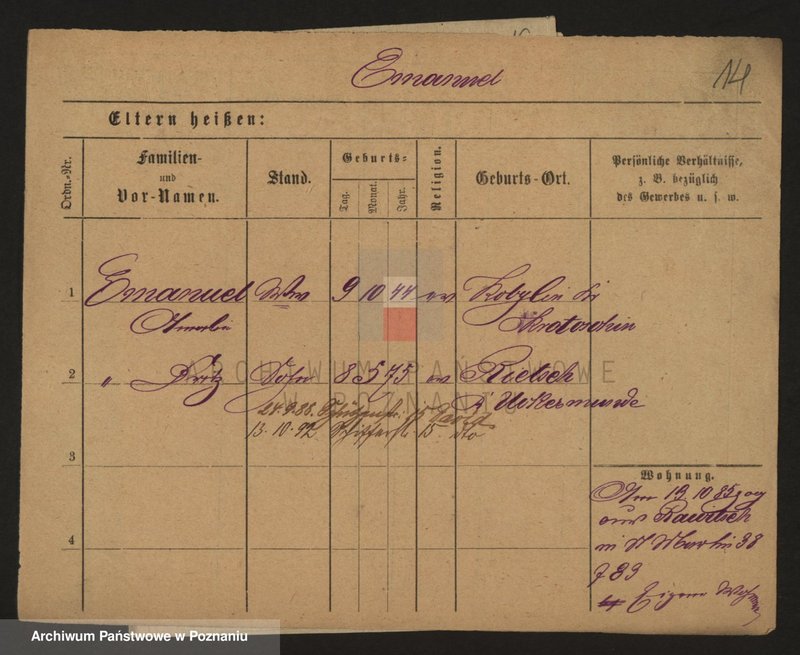 Emanuel
14
Eltern heißen:
Ordn.-Nr.
Familien-
und
Vor-Namen.
Stand.
Geburts-
Tag.
Monat.
Jahr.
Religion.
Geburts-Ort.
Persönliche Verhältnisse,
z. B. bezüglich
des Gewerbes u. s. w.
1 Emanuel Ww 9 10 44 ev Kobylin Kr
Krotoschin
2 " Fritz Sohn 8 5 75 ev Rieth
Kr Uckermünde
24.9.88.
13.10.92 Schifferstr. 15 dto
3
4
Wohnung.
Am 19 10 85 zog
aus Rawitsch
in St Martin 38
789
Eigene Wohnung
ARCHIWUM PAŃSTWOWE
W POZNANIU
Archiwum Państwowe w Poznaniu